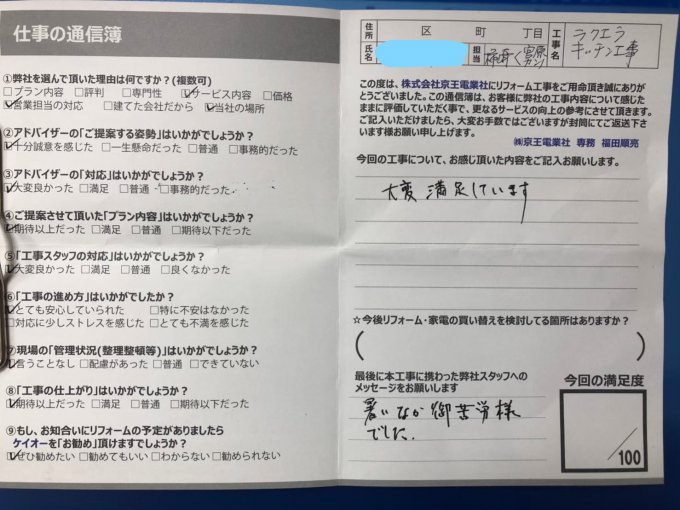 仕事の通信簿
①弊社を選んで頂いた理由は何ですか?(複数可)
□プラン内容 □評判 □専門性 ☑サービス内容 □価格
☑営業担当の対応 □建てた会社だから ☑当社の場所
②アドバイザーの「ご提案する姿勢」はいかがでしょうか?
☑十分誠意を感じた □一生懸命だった □普通 □事務的だった
③アドバイザーの「対応」はいかがでしょうか?
☑大変良かった □満足 □普通 □事務的だった
④ご提案させて頂いた「プラン内容」はいかがでしょうか?
☑期待以上だった □満足 □普通 □期待以下だった
⑤「工事スタッフの対応」はいかがでしょうか?
☑大変良かった □満足 □普通 □良くなかった
⑥「工事の進め方」はいかがでしたか?
☑とても安心していられた □特に不安はなかった
□対応に少しストレスを感じた □とても不満を感じた
⑦現場の「管理状況(整理整頓等)」はいかがでしょうか?
☑言うことなし □配慮があった □普通 □できていない
⑧「工事の仕上がり」はいかがでしょうか?
☑期待以上だった □満足 □普通 □期待以下だった
⑨もし、お知合いにリフォームの予定がありましたら
ケイオーを「お勧め」頂けますでしょうか?
☑ぜひ勧めたい □勧めてもいい □わからない □勧められない
住所 区 町 丁目
氏名
担当
工事名 ラクエラ
キッチン工事
この度は、株式会社京王電業社にリフォーム工事をご用命頂き誠にありがとうございました。この通信簿は、お客様に弊社の工事内容について感じた
ままに評価していただく事で、更なるサービスの向上の参考にさせて頂きます。
ご記入いただけましたら、大変お手数ではございますが封筒にてご返送下さいます様お願い申し上げます。
㈱京王電業社 専務 福田順亮
今回の工事について、お感じ頂いた内容をご記入お願いします。
大変満足しています
☆今後リフォーム・家電の買い替えを検討してる箇所はありますか?
( )
最後に本工事に携わった弊社スタッフへの
メッセージをお願いします
暑いなか御苦労様
でした.
今回の満足度
/100